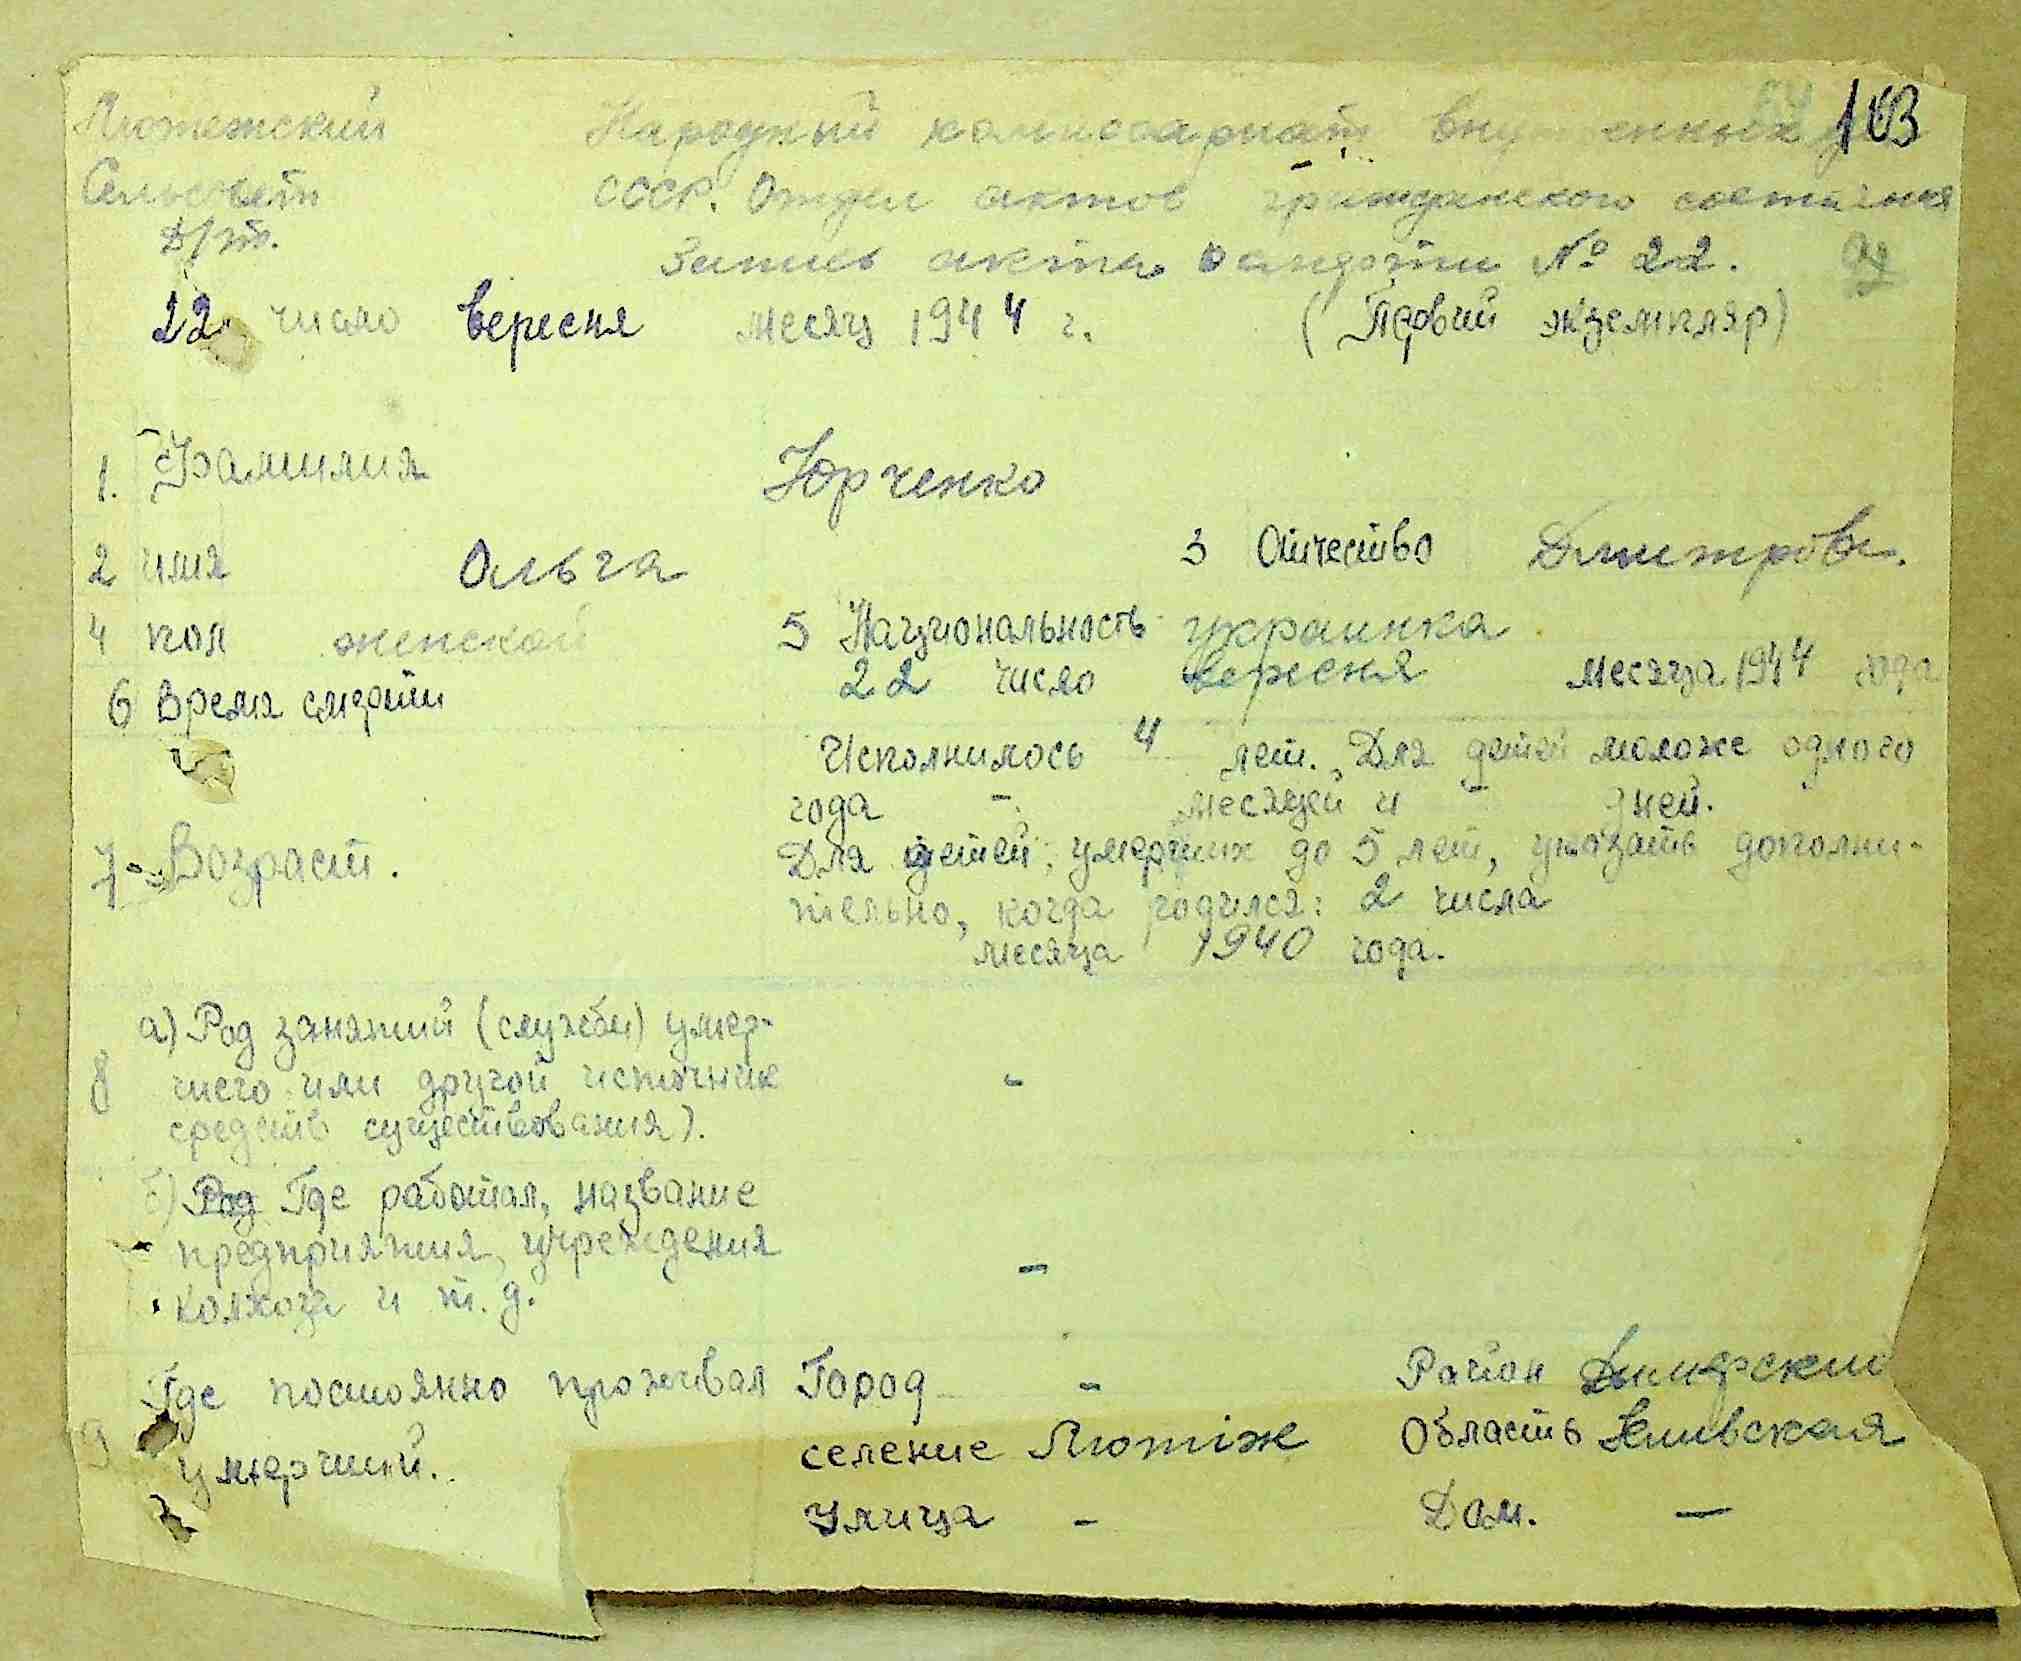 103
Лютежский Народный комиссариат внутренных
Сельсовет СССР. Отдел актов гражданского состояния
Д/рт. Запись акта о смерти № 22.
22 число вересня месяц 1944 г. (Первий экземпляр)
1. Фамилия Юрченко
2 имя Ольга 3 Отчество Дмитровн.
4 пол женской 5 Национальность украинка
6 Время смерти 22 число вересня месяца 1944 года
Исполнилось 4 лет. Для детей моложе одного
года - месяцей и - дней.
7. Возраст. Для детей, умерших до 5 лет, указать дополни-
тельно, когда родился: 2 числа
месяца 1940 года.
а) Род занятий (службы) умер-
8 шего или другой источник -
средств существования).
б) Род Где работал, название
предприятия, учреждения -
колхоза и т. д.
Где постоянно проживал Город - Район Дымерский
9 умерший. селение Лютіж Область Киивская
Улица - Дом. —